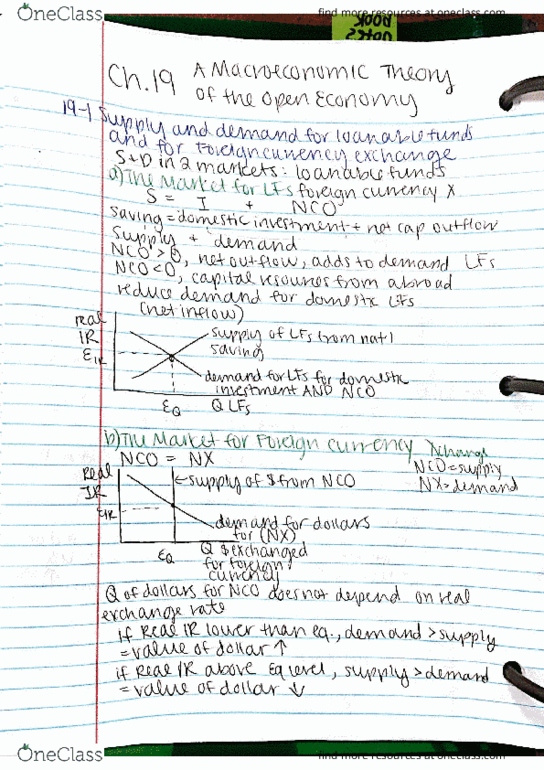 OneClass
find more resources at oneclass.com
NOTES
BOOK
Ch.19 A Macroeconomic Theory
of the Open Economy
19-1 Supply and demand for loanable funds
and for Foreign currency exchange
S+D in 2 markets: loanable funds
a) The Market for LFs foreign currency X
S = I + NCO
Saving = domestic investment + net cap outflow
Supply + demand
NCO > 0, net outflow, adds to demand LFs
NCO < 0, capital resources from abroad
reduce demand for domestic LFs
(net inflow)
Real
IR
EIR
supply of LFs from nat'l
saving
demand for LFs for domestic
investment AND NCO
EQ
Q LFs
b) The Market for Foreign Currency Xchange
NCO = NX
NCO = supply
NX = demand
Real
IR
EIR
supply of $ from NCO
demand for dollars
for (NX)
EQ
Q $ exchanged
for foreign
currency
Q of dollars for NCO does not depend on real
exchange rate
if Real IR lower than eq., demand > supply
= value of dollar ↑
if Real IR above Eq level, supply > demand
= value of dollar ↓
OneClass
find more resources at oneclass.com